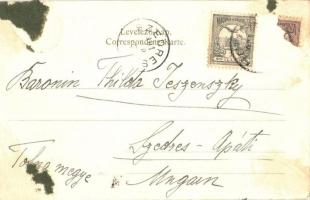 Levelező-Lap.
Correspondenz-Karte.
SZEDRES
Baronin Thilda Jeszenszky
Szedres-Apáti
Tolna megye
Ungarn